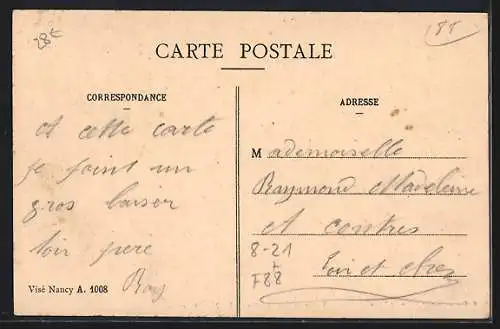 28€
88
CARTE POSTALE
CORRESPONDANCE
ADRESSE
A cette carte
je joint un
gros baiser
ton pere
Mademoiselle
Raymond Madeleine
A contres
8-21
Loir et Cher
F88
Visé Nancy A. 1008